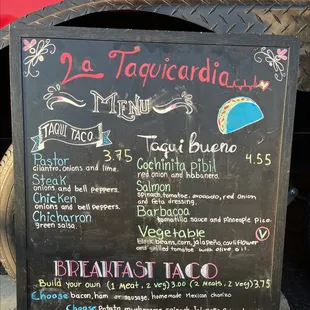 La Taquicardia
MENU
TAQUI TACO
Pastor 3.75
cilantro, onions and lime.
Steak
onions and bell peppers.
Chicken
onions and bell peppers.
Chicharron
green salsa.
Taqui bueno
Cochinita pibil 4.55
red onion and habanero.
Salmon
spinach, tomatoe, avocado, red onion
and feta dressing.
Barbacoa
tomatillo sauce and pineaple Pico.
Vegetable V
Black beans, corn, jalapeño, cauliflower
and grilled tomatoe with olive oil.
BREAKFAST TACO
Build your own (1 Meat, 2 veg) 3.00 (2 Meats, 2 veg) 3.75
Choose bacon, ham or sausage, homemade Mexican chorizo
Choose Potato mushrooms spinach